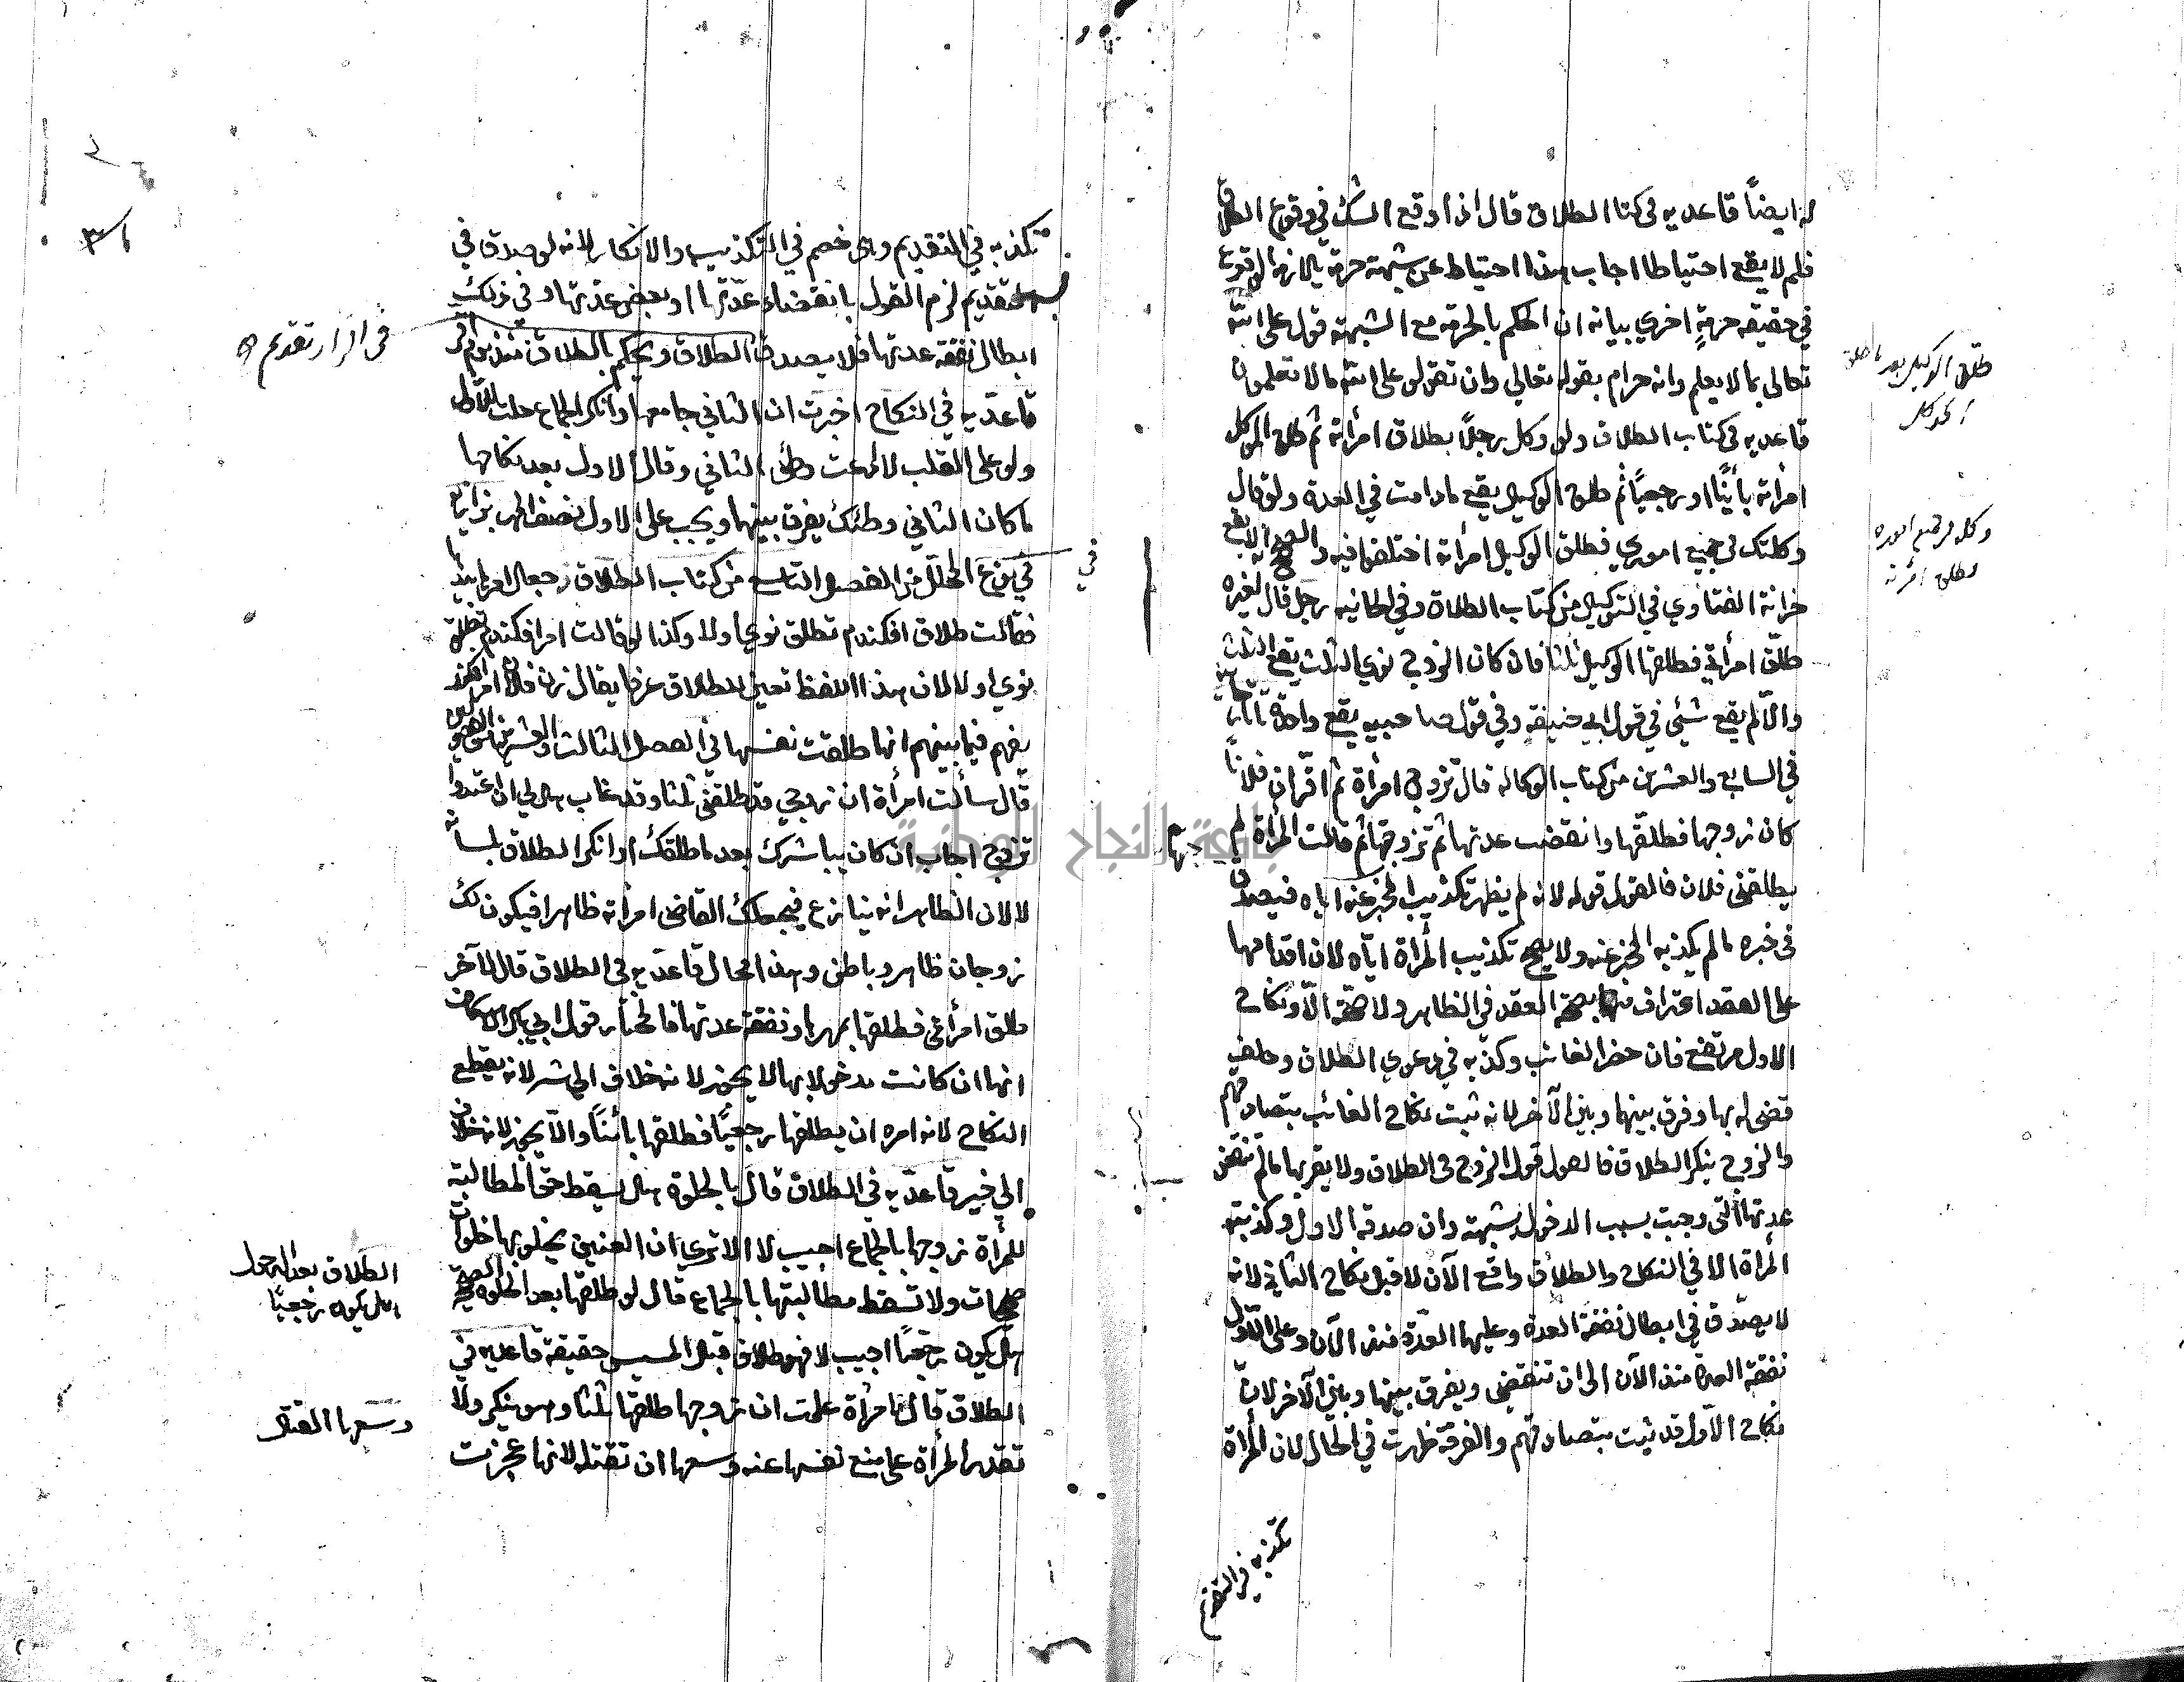 له ايضاً قاعديه في كتاا الطلاق قال اذا وقع الشك في وقوع الطلاق
فلم لا يقع احتياطا اجاب هذا احتياط عن شبهة حرمة بالزام الوقوع
في حقيقه حرمةٍ اخري بيانه ان الحكم بالحرمة مع الشبهة قول على الله
تعالى بما لا يعلم وانه حرام بقوله تعالي وان تقولوا على الله ما لا تعلمون
قاعديه في كتاب الطلاق ولو وكل رجلاً بطلاق امرأته ثم طلق الموكل
امرأته بائناً او رجعياً ثم طلق الوكيل يقع ما دامت في العدة ولو قال
وكلتك في جميع اموري فطلق الوكيل امرأته اختلفوا فيه والصحيح انه لا يقع
خزانة الفتاوي في التوكيل من كتاب الطلاق وفي الخانيه رجل قال لغيره
طلّق امرأتي فطلقها الوكيل ثلثا فان كان الزوج نوي الثلث يقع الثلث
والاّ لم يقع شيئ في قول ابي حنيفة وفي قول صاحبيه يقع واحدة
في السابع والعشرين من كتاب الوكالة قال تزوج امرأة ثم اقرّ ان فلاناً
كان زوجها فطلّقها وانقضت عدتها ثم تزوجتها ثم قالت المرأة لم
يطلقني فلان فالقول قوله لانه لم يظهر تكذيب المخبر عنه اياه فيصدق
في خبره ما لم يكذبه المخبر عنه ولا يصح تكذيب المرأة ايّاه لان اقدامها
على العقد اعتراف منها بصحة العقد في الظاهر ولا صحّة الاّ ونكاح
الاول مرتفع فان حضر الغائب وكذّبه في دعوي الطلاق وحلف
قضى له بها وفرق بينها وبين الآخر لانه ثبت نكاح الغائب بتصادقهم
والزوج ينكر الطلاق فالقول قول الزوج في الطلاق ولا يقربها ما لم تنقض
عدتها التي وجبت بسبب الدخول بشبهة وان صدقه الاول وكذبته
المرأة الا في النكاح والطلاق واقع الآن لا قبل نكاح الثاني لانه
لا يصدّق في ابطال نفقة العدة وعليها العدّة منذ الآن وعلى الاوّل
نفقة العدة منذ الآن الى ان تنقضي ويفرق بينها وبين الآخر لانّ
نكاح الاوّل قد ثبت بتصادقهم والفرقة ظهرت في الحال لان المرأة
تكذبه في التقديم
طلق الوكيل بعد ما طلق
الموكل
وكله في جميع اموره
فطلق امرأته
تكذبه في التقديم وهي خصم في التكذيب والانكار لانه لو صدق في
التقديم لزم القول بانقضاء عدّتها او بعض عدتها وفي ذلك
ابطال نفقة عدتها فلا يصدق الطلاق ويحكم بالطلاق منذ يوم اقر
قاعديه في النكاح اخبرت ان الثاني جامعها وانكر الجماع حلت للاوّل
ولو على القلب لا ادعت وطئ الثاني وقال الاول بعد نكاحها
ما كان الثاني وطئك يفرق بينهما ويجب على الاول نصف المهر بزازية
في نوع المحلل من الفصل التاسع من كتاب الطلاق جعل امرها بيدها
فقالت طلاق افكندم تطلق نوي او لا وكذا لو قالت امرا فكندم تطلق
نوي او لا لان هذا اللفظ تعين للطلاق عرفا يقال زن فلان
يفهم فيما بينهم انها طلقت نفسها في الفصل الثالث والعشرين
قال سألت امرأة ان زوجي قد طلقني ثلثا وقد غاب هل لي ان اعتد وا
تزوج اجاب ان كان يباشرك بعد ما طلقك او انكر الطلاق بلسانه
لا لان الظاهر انه ينازع فيجعلك القاضي امرأته ظاهرا فيكون لك
زوجان ظاهر وباطن وهذا محال قاعديه في الطلاق قال لآخر
طلق امرأتي فطلقها بمهرها ونفقة عدتها فالمختار قول ابي بكر الاسكاف
انها ان كانت مدخولا بها لا يجوز لانه خلاف الي شر لانه يقطع
النكاح لانه امره ان يطلقها رجعيّاً فطلقها بائناً والاّ يجوز لانه خلاف
الي خير قاعديه في الطلاق قال بالخلوة هل يسقط حق المطالبة
للمرأة زوجها بالجماع اجيب لا الا تري ان العنين يخلو بها خلوات
صحيحات ولا تسقط مطالبتها بالجماع قال لو طلقها بعد الخلوة الصحيحة
هل يكون رجعيّاً اجيب لا فهو طلاق قبل المسيس حقيقة قاعديه في
الطلاق قال امرأة علمت ان زوجها طلقها ثلثا وهو ينكر ولا
تقدر المرأة على منع نفسها عنه وسعها ان تقتله لانها عجزت
الطلاق بعد الدخول
هل يكون رجعيّاً
وسعها القتل
جامعة النجاح الوطنية